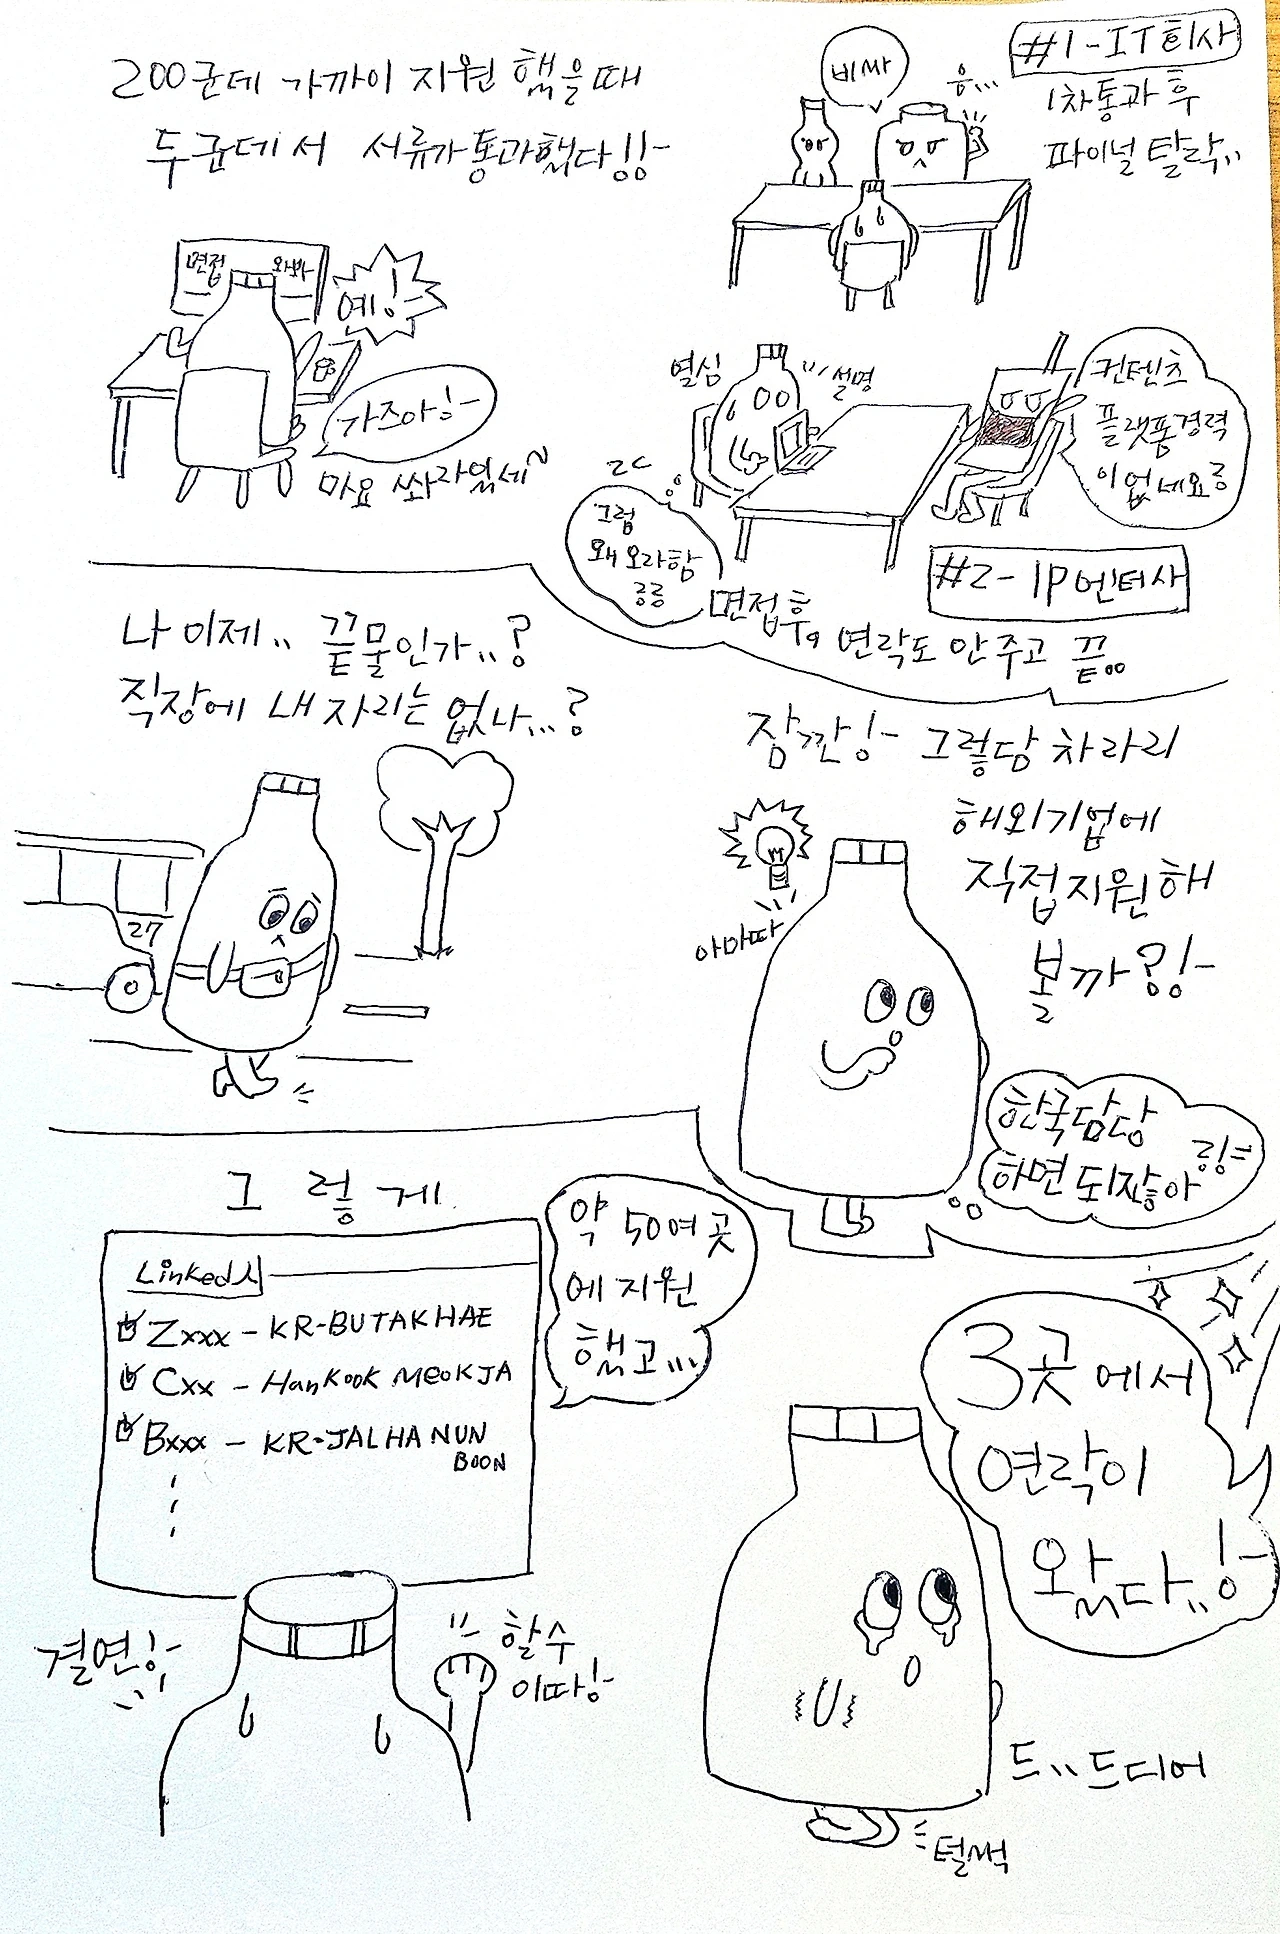 200군데 가까이 지원 했을때
두군데서 서류가 통과했다!!
면접
와봐
예!
가즈아!
#1-IT회사
1차통과 후
파이널 탈락..
비싸
음...
열심
설명
컨텐츠
플랫폼경력
이 없네요ㅎ
그럼
왜 오라함
ㅎㅎ
#2-IP엔터사
면접후, 연락도 안 주고 끝..
나 이제.. 끝물인가..?
직장에 내 자리는 없나...?
27
잠깐! 그렇담 차라리
해외기업에
직접지원해
볼까?!
아마따
한국담당
하면 되잖아
그 렇 게
Linked시
Zxxx - KR-BUTAKHAE
Cxx - HanKook MEOKJA
Bxxx - KR-JALHANUN
BOON
약 50여 곳
에 지원
했고...
결연!
할수
이따!
3곳에서
연락이
왔다..!
드..드디어
털썩